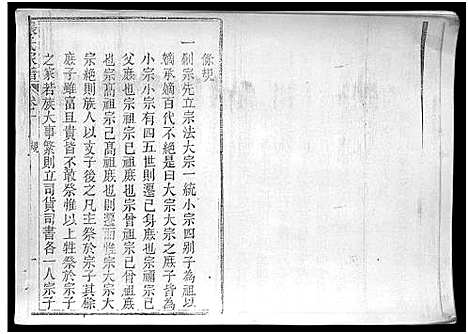 條規
一剏宗先立宗法大宗一統小宗四別子為祖以
嫡承嫡百代不絶是曰大宗大宗之庶子皆為
小宗小宗有四五世則遷己身庶也宗禰宗己
父庶也宗祖宗己祖庶也宗曾祖宗己曾祖庶
也宗高祖宗己高祖庶也宗遷而惟宗大宗大
宗絶則族人以支子後之凡主祭於宗子其餘
庶子雖富且貴皆不敢祭惟以上牲祭於宗子
之家若族大事繁則立司貨司書各一人宗子
氏家譜 卷一 規